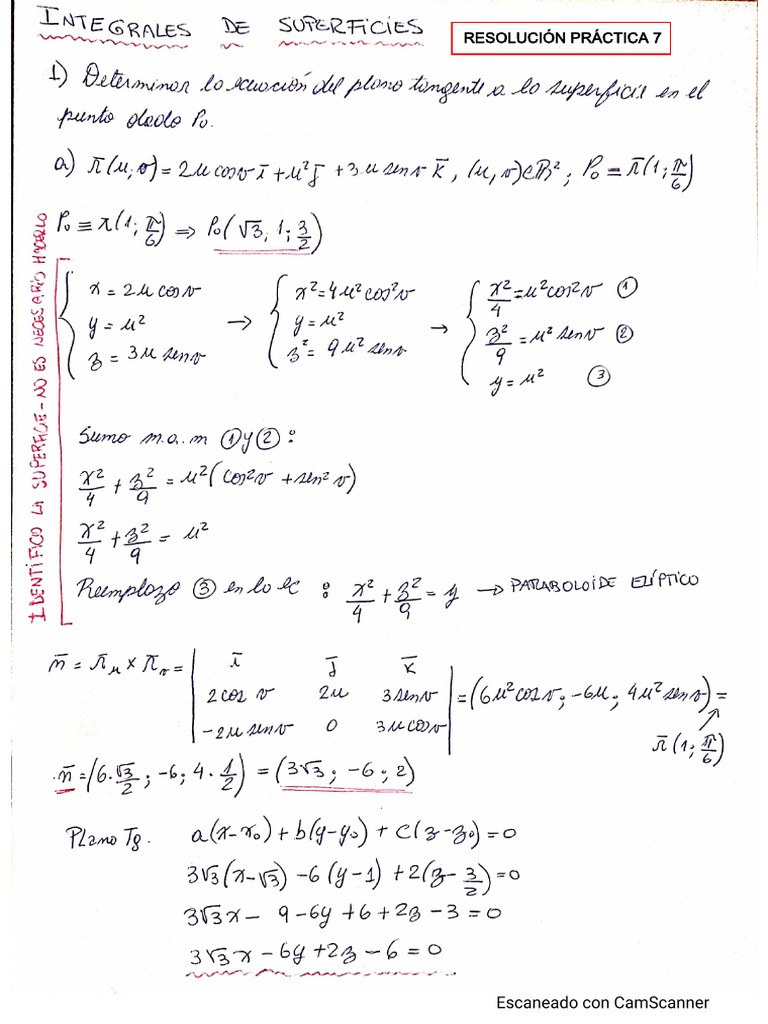 INTEGRALES DE SUPERFICIES
RESOLUCIÓN PRÁCTICA 7
1) Determinar la ecuación del plano tangente a la superficie en el
punto dado P₀.
a) r̄(u,v) = 2u cosv ī + u² j̄ + 3u senv k̄, (u,v)∈R²; P₀ = r̄(1; π/6)
P₀ ≡ r(1; π/6) ⇒ P₀(√3, 1; 3/2)
IDENTIFICO LA SUPERFICIE - NO ES NECESARIO HACERLO
{ x = 2u cosv → { x² = 4u² cos²v → { x²/4 = u² cos²v ①
y = u² y = u² z²/9 = u² sen²v ②
z = 3u senv z² = 9u² senv y = u² ③
Sumo m.a.m ① y ② :
x²/4 + z²/9 = u²(cos²v + sen²v)
x²/4 + z²/9 = u²
Reemplazo ③ en la ec : x²/4 + z²/9 = y → PARABOLOIDE ELÍPTICO
n̄ = r̄ᵤ × r̄ᵥ = | ī j̄ k̄ |
| 2cos v 2u 3senv | = (6u² cosv; -6u; 4u² senv) =
| -2u senv 0 3u cosv | ↗ r̄(1; π/6)
n̄ = (6·√3/2; -6; 4·1/2) = (3√3; -6; 2)
Plano Tg. a(x-x₀) + b(y-y₀) + c(z-z₀) = 0
3√3(x-√3) - 6(y-1) + 2(z-3/2) = 0
3√3x - 9 - 6y + 6 + 2z - 3 = 0
3√3x - 6y + 2z - 6 = 0
Escaneado con CamScanner